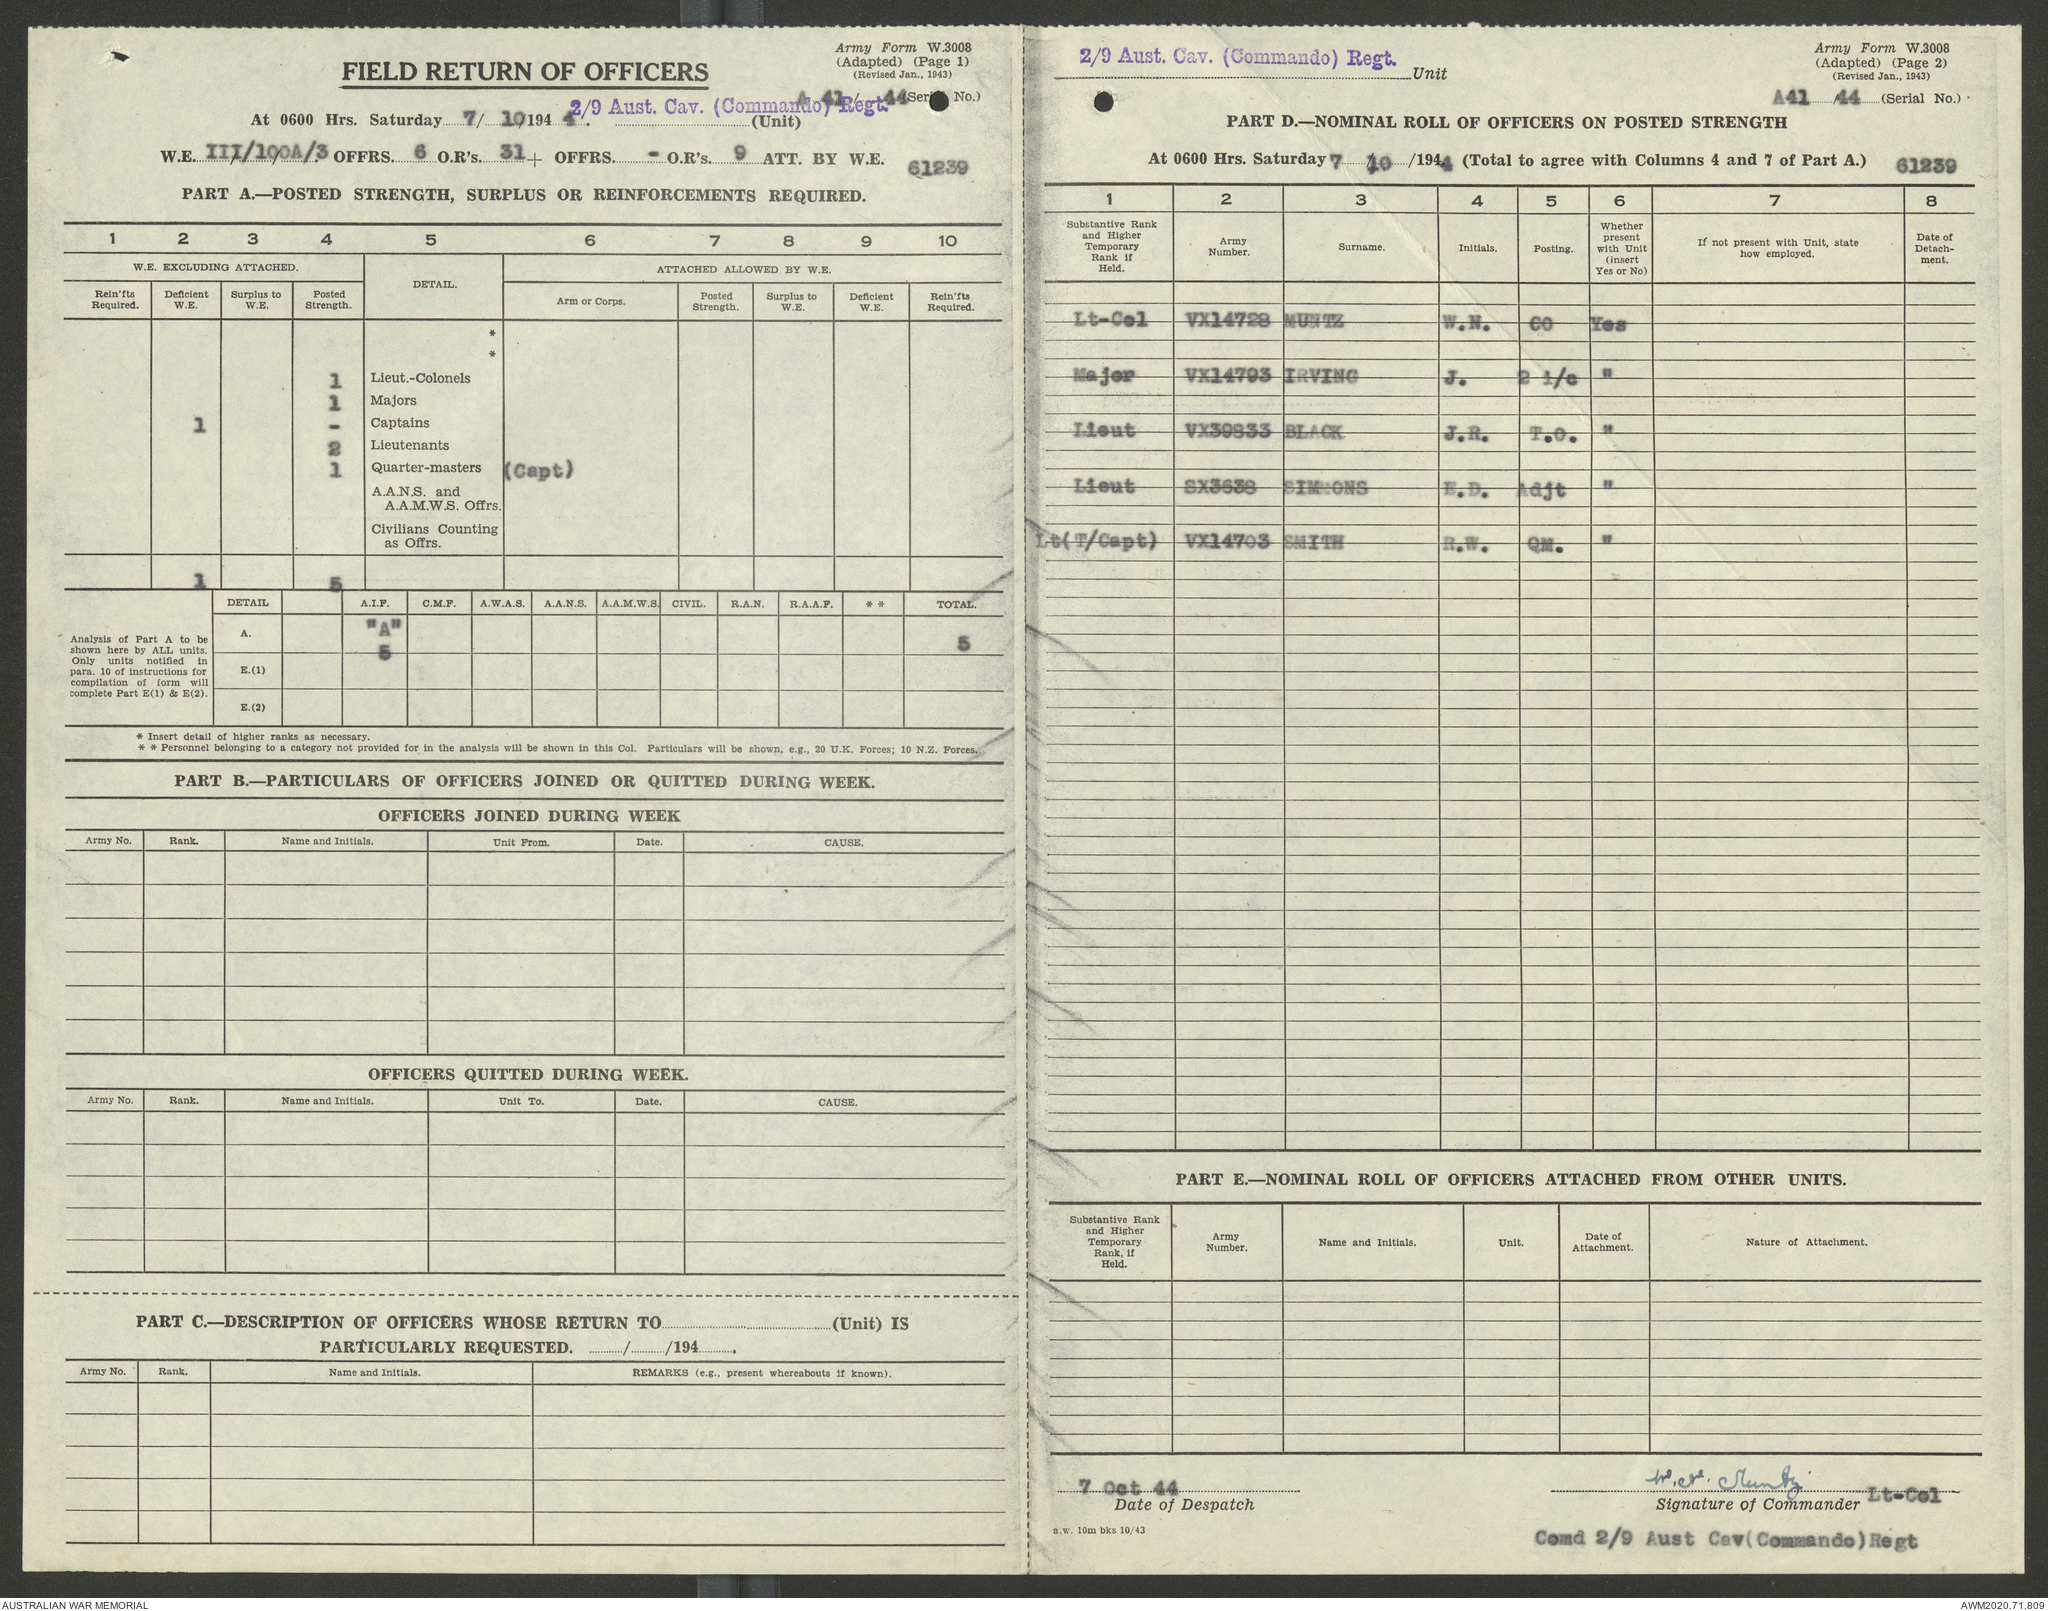 Army Form W.3008
(Adapted) (Page 1)
(Revised Jan., 1943)
FIELD RETURN OF OFFICERS
A 41/ 44 (Serial No.)
2/9 Aust. Cav. (Commando) Regt.
At 0600 Hrs. Saturday 7/ 10/194 4. (Unit)
W.E. III/100A/3 OFFRS. 6 O.R's. 31 + OFFRS. - O.R's. 9 ATT. BY W.E.
61239
PART A.—POSTED STRENGTH, SURPLUS OR REINFORCEMENTS REQUIRED.
1 2 3 4 5 6 7 8 9 10
W.E. EXCLUDING ATTACHED. DETAIL. ATTACHED ALLOWED BY W.E.
Rein'fts Required. Deficient W.E. Surplus to W.E. Posted Strength. Arm or Corps. Posted Strength. Surplus to W.E. Deficient W.E. Rein'fts Required.
*
*
1 Lieut.-Colonels
1 Majors
1 - Captains
2 Lieutenants
1 Quarter-masters (Capt)
A.A.N.S. and
A.A.M.W.S. Offrs.
Civilians Counting
as Offrs.
1 5
DETAIL A.I.F. C.M.F. A.W.A.S. A.A.N.S. A.A.M.W.S. CIVIL. R.A.N. R.A.A.F. * * TOTAL.
Analysis of Part A to be
shown here by ALL units.
Only units notified in
para. 10 of instructions for
compilation of form will
complete Part E(1) & E(2).
A. "A" 5 5
E.(1)
E.(2)
* Insert detail of higher ranks as necessary.
* * Personnel belonging to a category not provided for in the analysis will be shown in this Col. Particulars will be shown, e.g., 20 U.K. Forces; 10 N.Z. Forces.
PART B.—PARTICULARS OF OFFICERS JOINED OR QUITTED DURING WEEK.
OFFICERS JOINED DURING WEEK
Army No. Rank. Name and Initials. Unit From. Date. CAUSE.
OFFICERS QUITTED DURING WEEK.
Army No. Rank. Name and Initials. Unit To. Date. CAUSE.
PART C.—DESCRIPTION OF OFFICERS WHOSE RETURN TO (Unit) IS
PARTICULARLY REQUESTED. / /194 .
Army No. Rank. Name and Initials. REMARKS (e.g., present whereabouts if known).
2/9 Aust. Cav. (Commando) Regt. Unit
Army Form W.3008
(Adapted) (Page 2)
(Revised Jan., 1943)
A41 /44 (Serial No.)
PART D.—NOMINAL ROLL OF OFFICERS ON POSTED STRENGTH
At 0600 Hrs. Saturday 7 10 /1944 (Total to agree with Columns 4 and 7 of Part A.) 61239
1 2 3 4 5 6 7 8
Substantive Rank and Higher Temporary Rank if Held. Army Number. Surname. Initials. Posting. Whether present with Unit (insert Yes or No) If not present with Unit, state how employed. Date of Detach-ment.
Lt-Col VX14728 MUNTZ W.N. CO Yes
Major VX14793 IRVING J. 2 i/c "
Lieut VX39833 BLACK J.R. T.O. "
Lieut SX3638 SIMMONS E.D. Adjt "
Lt(T/Capt) VX14703 SMITH R.W. QM. "
PART E.—NOMINAL ROLL OF OFFICERS ATTACHED FROM OTHER UNITS.
Substantive Rank and Higher Temporary Rank, if Held. Army Number. Name and Initials. Unit. Date of Attachment. Nature of Attachment.
7 Oct 44
Date of Despatch
W. N. Muntz
Signature of Commander Lt-Col
a.w. 10m bks 10/43
Comd 2/9 Aust Cav(Commando)Regt
AUSTRALIAN WAR MEMORIAL
AWM2020.71.809